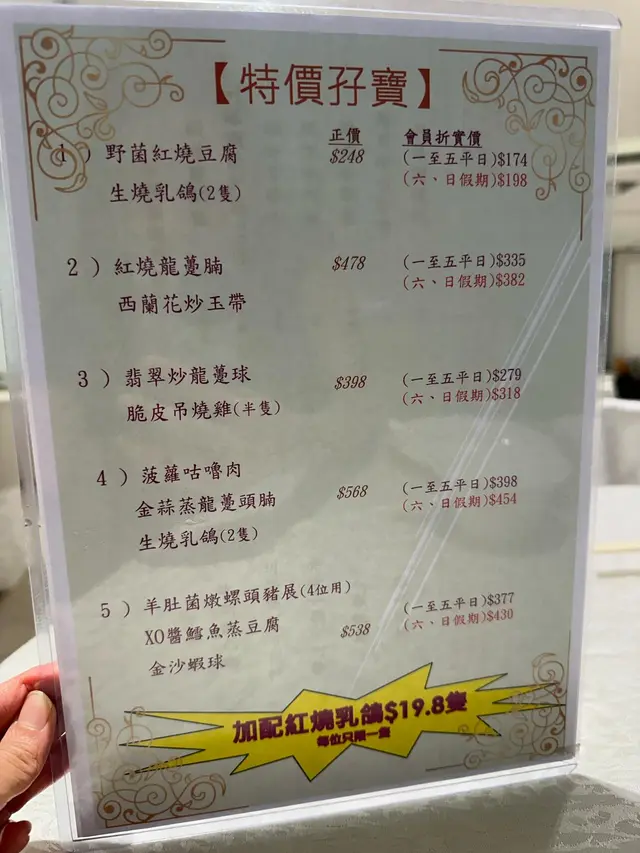 【特價孖寶】
正價 會員折實價
1）野菌紅燒豆腐 $248 (一至五平日)$174
生燒乳鴿(2隻) (六、日假期)$198
2）紅燒龍躉腩 $478 (一至五平日)$335
西蘭花炒玉帶 (六、日假期)$382
3）翡翠炒龍躉球 $398 (一至五平日)$279
脆皮吊燒雞(半隻) (六、日假期)$318
4）菠蘿咕嚕肉
金蒜蒸龍躉頭腩 $568 (一至五平日)$398
生燒乳鴿(2隻) (六、日假期)$454
5）羊肚菌燉螺頭豬展(4位用)
XO醬鱈魚蒸豆腐 $538 (一至五平日)$377
金沙蝦球 (六、日假期)$430
加配紅燒乳鴿$19.8隻
每位只限一隻